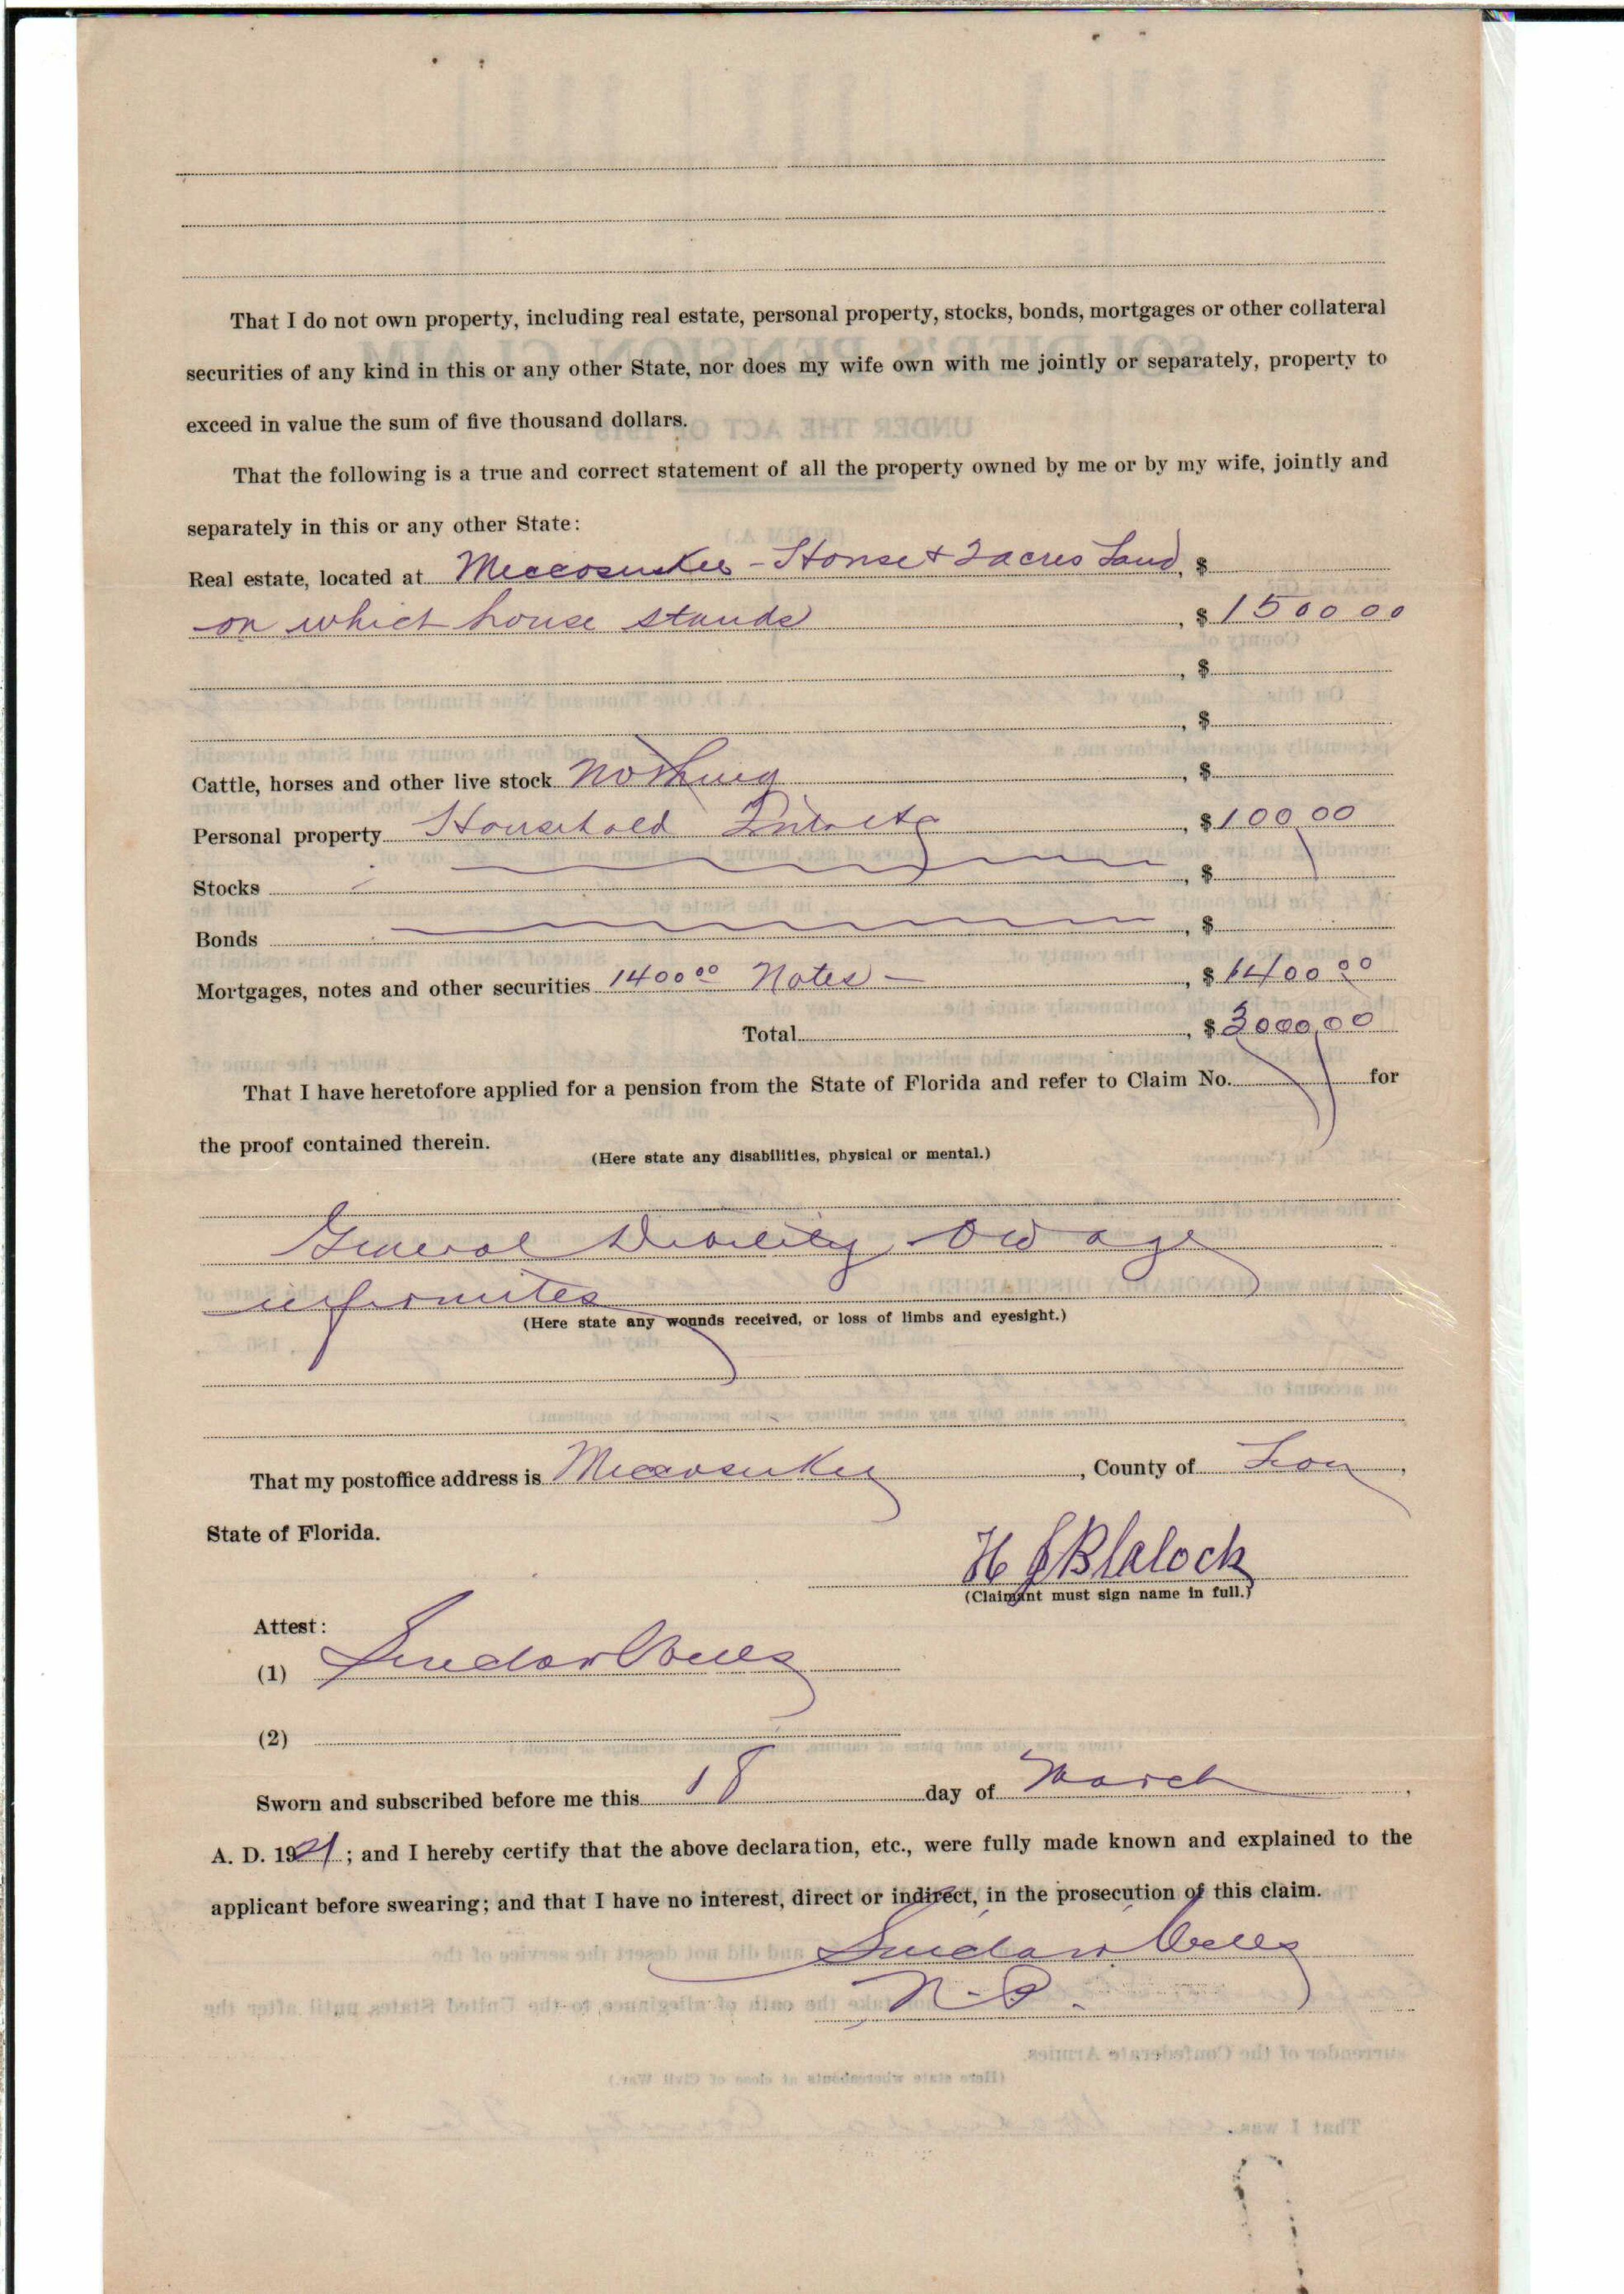 That I do not own property, including real estate, personal property, stocks, bonds, mortgages or other collateral
securities of any kind in this or any other State, nor does my wife own with me jointly or separately, property to
exceed in value the sum of five thousand dollars.
That the following is a true and correct statement of all the property owned by me or by my wife, jointly and
separately in this or any other State:
Real estate, located at Miccosukee - House & 2 acres Land, $
on which house stands, $ 1500 00
, $
, $
Cattle, horses and other live stock Nothing, $
Personal property Household, $ 100,00
Stocks, $
Bonds, $
Mortgages, notes and other securities 1400 00 Notes -, $ 1400 00
Total, $ 3000,00
That I have heretofore applied for a pension from the State of Florida and refer to Claim No. for
the proof contained therein.
(Here state any disabilities, physical or mental.)
General Debility Old age
infirmites
(Here state any wounds received, or loss of limbs and eyesight.)
That my postoffice address is Miccosukee, County of Leon,
State of Florida.
H J Blalock
(Claimant must sign name in full.)
Attest:
(1)
(2)
Sworn and subscribed before me this 18 day of March,
A. D. 1921; and I hereby certify that the above declaration, etc., were fully made known and explained to the
applicant before swearing; and that I have no interest, direct or indirect, in the prosecution of this claim.
N. P.